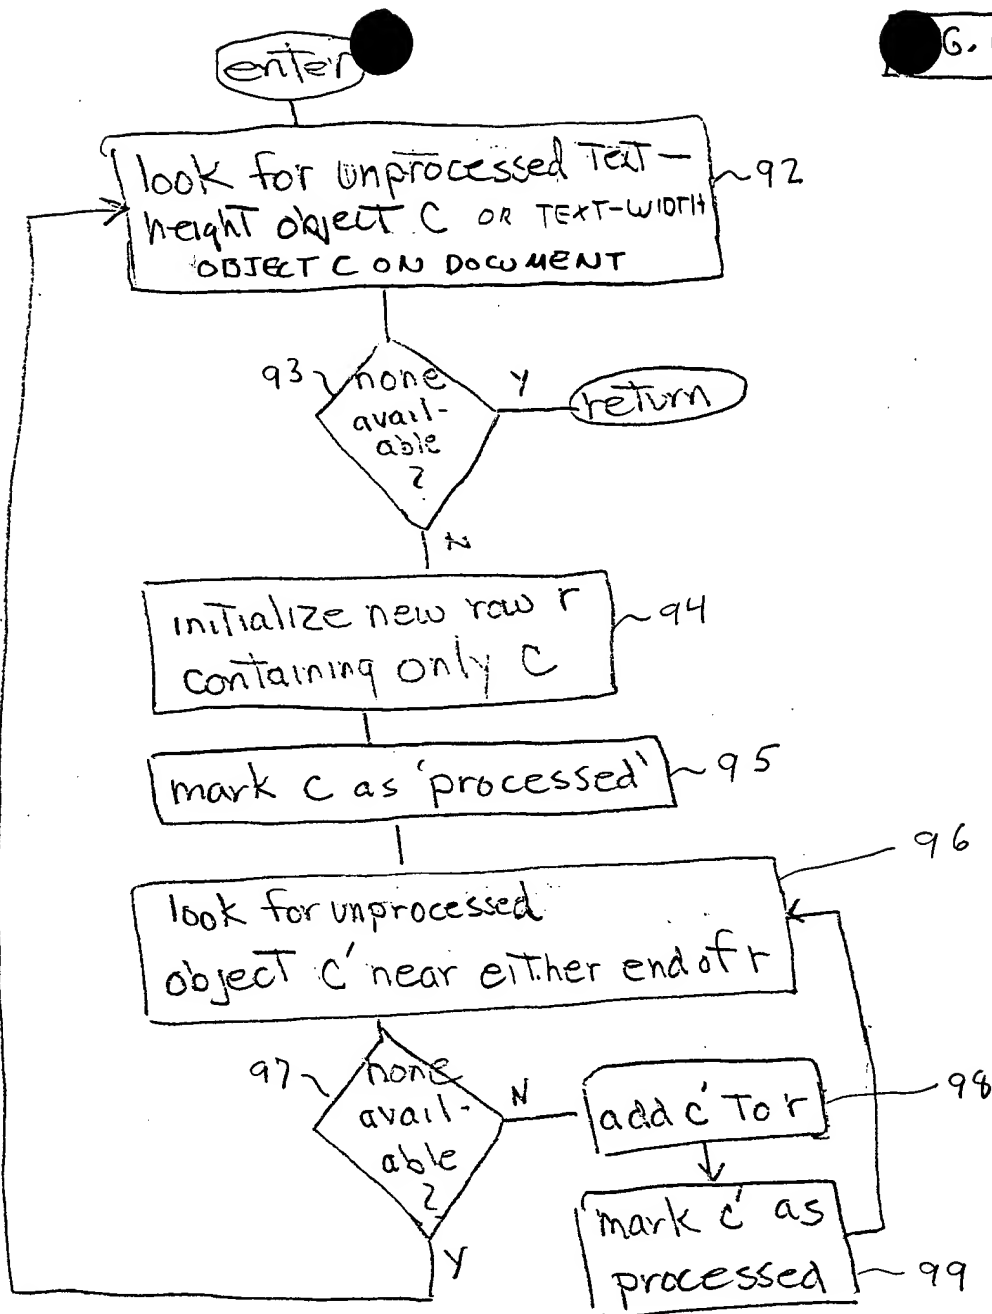 enter
G.
look for unprocessed Text-
height object C OR TEXT-WIDTH
OBJECT C ON DOCUMENT
92
93
none
avail-
able
?
Y
return
N
initialize new row r
containing only C
94
mark C as 'processed'
95
96
look for unprocessed
object C' near either end of r
97
none
avail-
able
?
N
add c' To r
98
mark c' as
processed
99
Y